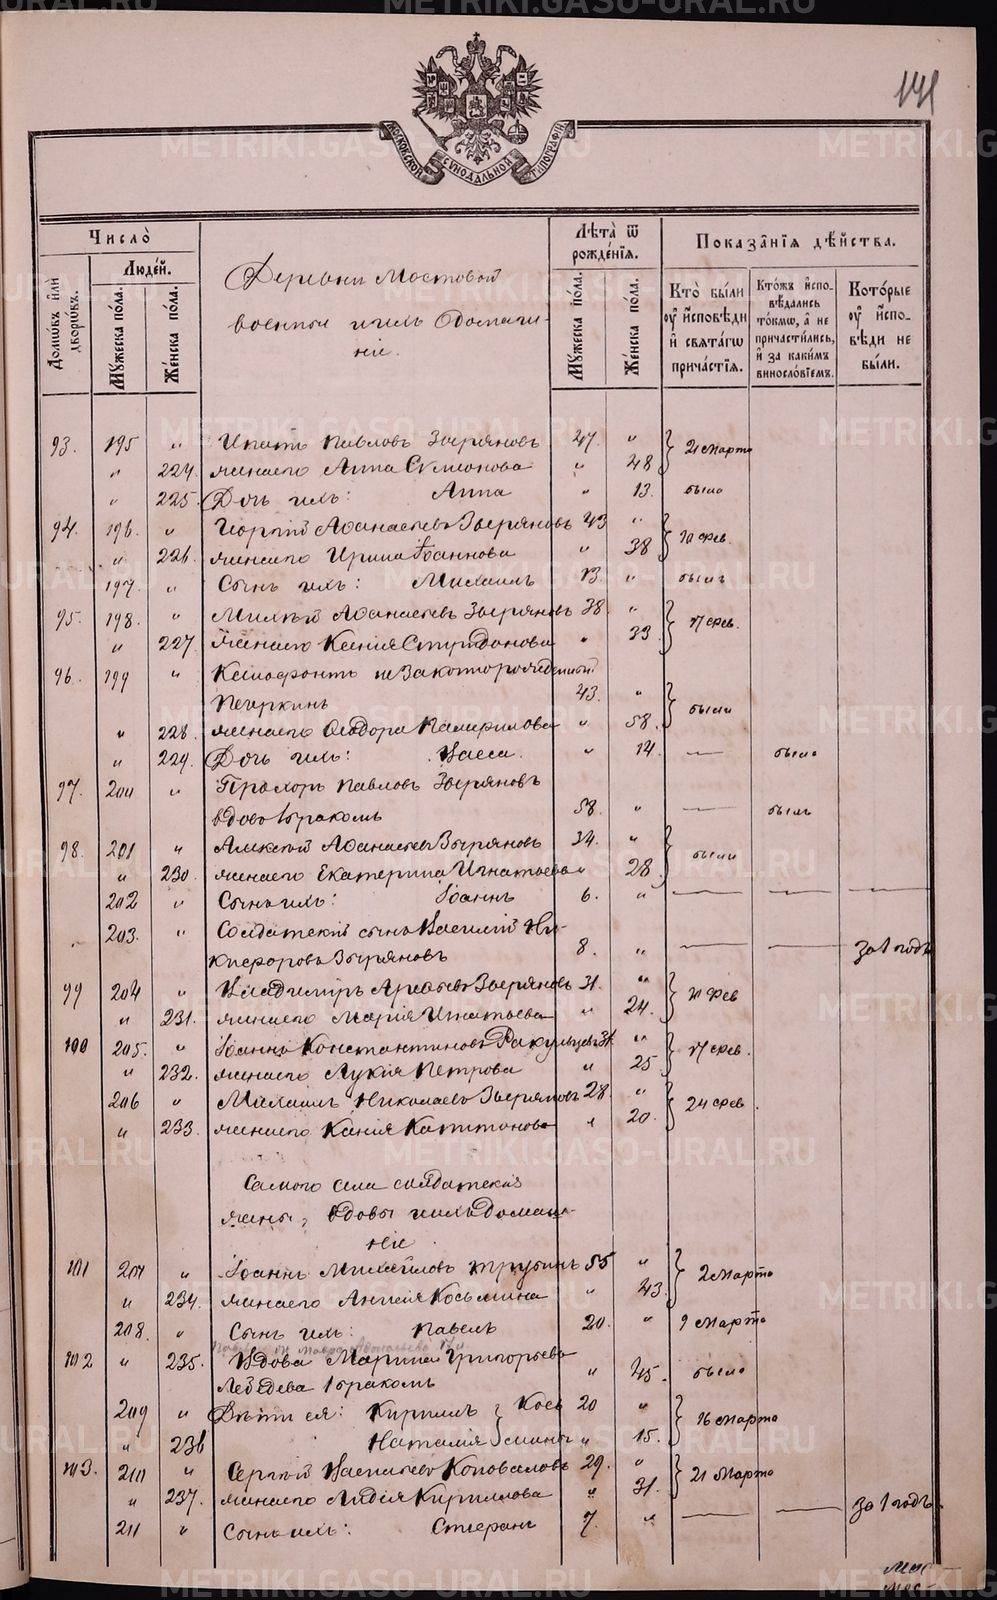 141
МОСКОВСКОЙ СѴНОДАЛЬНОЙ ТИПОГРАФІИ
Число̀
Людéй.
Домѡвъ и҆лѝ дворѡвъ.
Мꙋжеска по́ла.
Же́нска по́ла.
Деревни Мостовой
военныи и ихъ домашн-
ніе.
Лѣта̀ ѿ рождéнїѧ.
Мꙋжеска по́ла.
Же́нска по́ла.
Показа̑нїѧ дѣ́йства.
Кто̀ бы́ли ᲂу҆ и҆сповѣ́ди и҆ свѧта́гѡ причáстїѧ.
Кто́жъ и҆спо- вѣ́дались то́кмѡ, а҆ не причасти́лись, и҆ за каки́мъ винослóвїемъ.
Кото́рые ᲂу҆ и҆спо- вѣ́ди не бы́ли.
93. 195 " Игнатъ Павловъ Зверяновъ 47. " } 21 Марта
" 224. жена его Анна Симионова " 48
" 225. Дочь ихъ: Анна " 13. была
94. 196. " Георгій Аѳанасьевъ Зверяновъ 43 " } 20 Фев.
" 226. жена его Ирина Іоаннова " 38
197. " Сынъ ихъ: Михаилъ 13 " былъ
95. 198. " Аѳанасьевъ Зверяновъ 38. " } 17 Фев.
" 227. жена его Ксенія Спиридонова " 33.
96. 199 " Ксенофонтъ незаконорожденный
43. " } были
" 228. жена его Ѳеодора " 58.
" 229. Дочь ихъ: " 14. — была
97. 200 " Прохоръ Павловъ Зверяновъ
вдовъ 1 бракомъ 58. " — былъ
98. 201 " Алексѣй Аѳанасьевъ Зверяновъ 34. " } были
" 230. жена его Екатерина Игнатьева " 28.
202 " Сынъ ихъ: Іоаннъ 6. " — — —
203. " Солдатскій сынъ Василій Ни-
кифоровъ Зверяновъ 8. " — — за 1 годъ
99 204 " Владимиръ Зверяновъ 31. " } 20 Фев
" 231. жена его Марія Игнатьева " 24.
100 205. " Іоаннъ Константиновъ Ракульцевъ 31. " } 17 Фев.
" 232. жена его Лукія Петрова " 25
206 " Михаилъ Николаевъ Зверяновъ 28. " } 24 Фев.
" 233. жена его Ксенія Капитонова " 20.
Самого села солдатскія
жены, вдовы и ихъ домаш-
ніе
101 207 " Іоаннъ Михайловъ Трубинъ 55 " } 2 Марта
" 234. жена его Косьмина " 43.
208. " Сынъ ихъ: Павелъ 20. " 9 Марта
102 " 235. Вдова Марина Григорьева
Лебедева 1 бракомъ " 45. была
209 " Дѣти ея: Кириллъ } Кось- 20 " } 16 Марта
" 236 Наталія } мины " 15.
103. 210 " Сергій Васильевъ Коноваловъ 29. " } 21 Марта
" 237. жена его Лидія Кириллова " 31.
211 " Сынъ ихъ: Стефанъ 7. " — — за 1 годъ.
METRIKI.GASO-URAL.RU